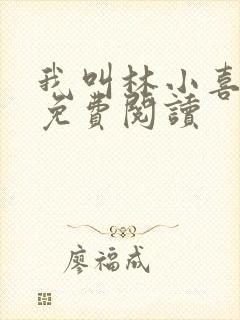 我叫林小喜
免費閱讀
廖福成